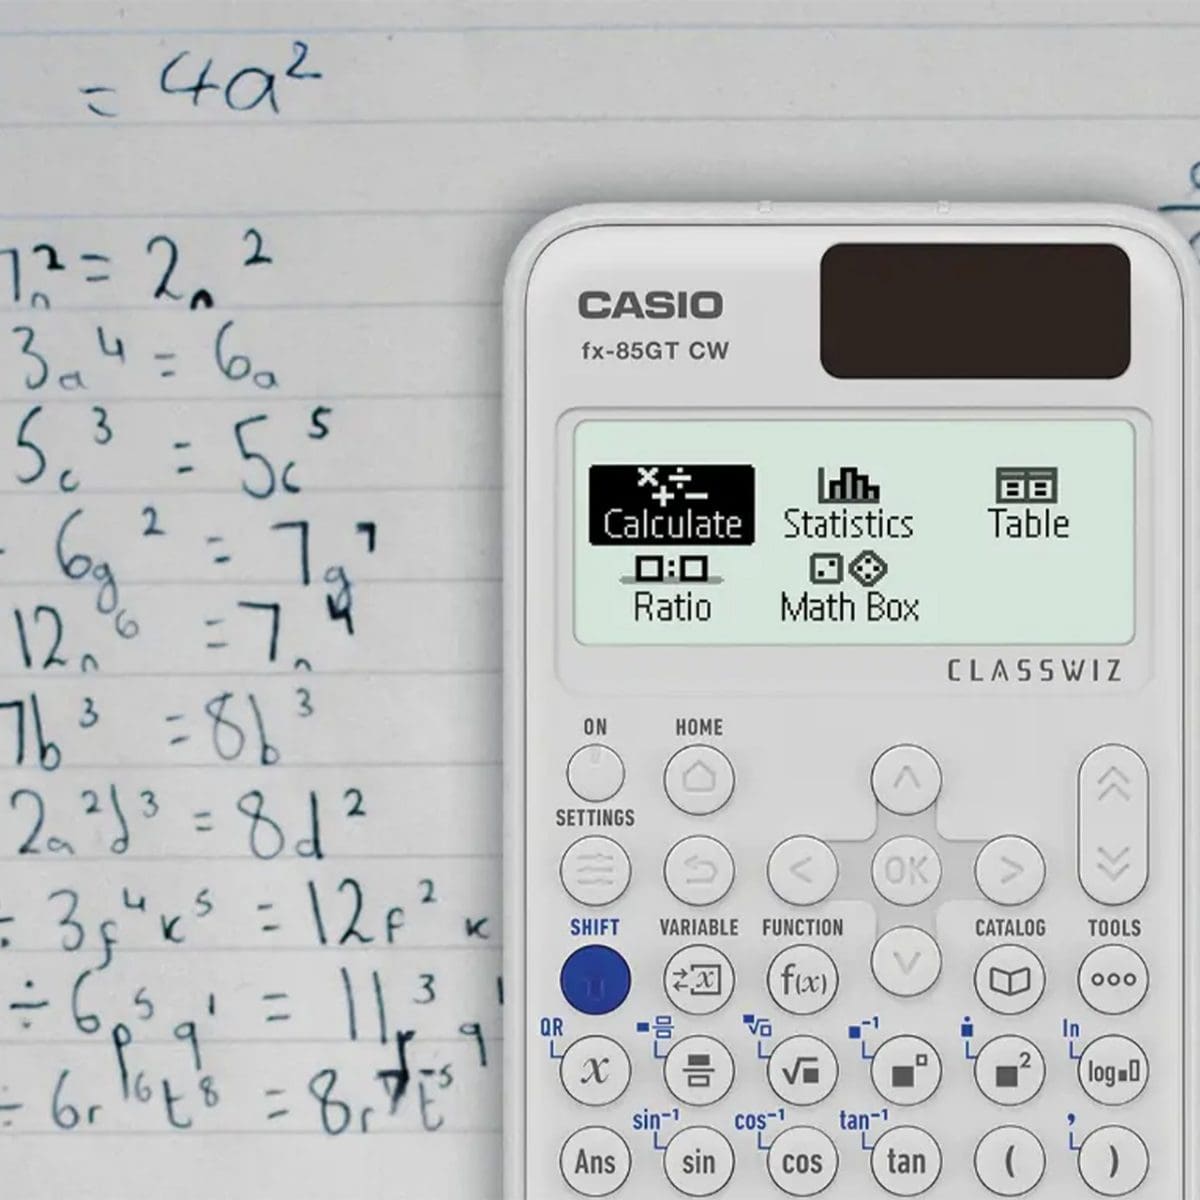 = 4a²
7n² = 2n²
3a⁴ = 6a
5c³ = 5c⁵
6g² = 7g⁷
12n⁶ = 7n⁴
7b³ = 8b³
2a²d³ = 8d²
÷ 3f⁴k⁵ = 12f²k
÷ 6p⁵q¹ = 11 ³ q
÷ 6r¹⁶t⁸ = 8r⁷t⁻⁵
CASIO
fx-85GT CW
Calculate Statistics Table
Ratio Math Box
CLASSWIZ
ON HOME
SETTINGS
OK
SHIFT VARIABLE FUNCTION CATALOG TOOLS
x f(x)
QR √ -1 ln
x √ 2 log
sin⁻¹ cos⁻¹ tan⁻¹ ,
Ans sin cos tan ( )